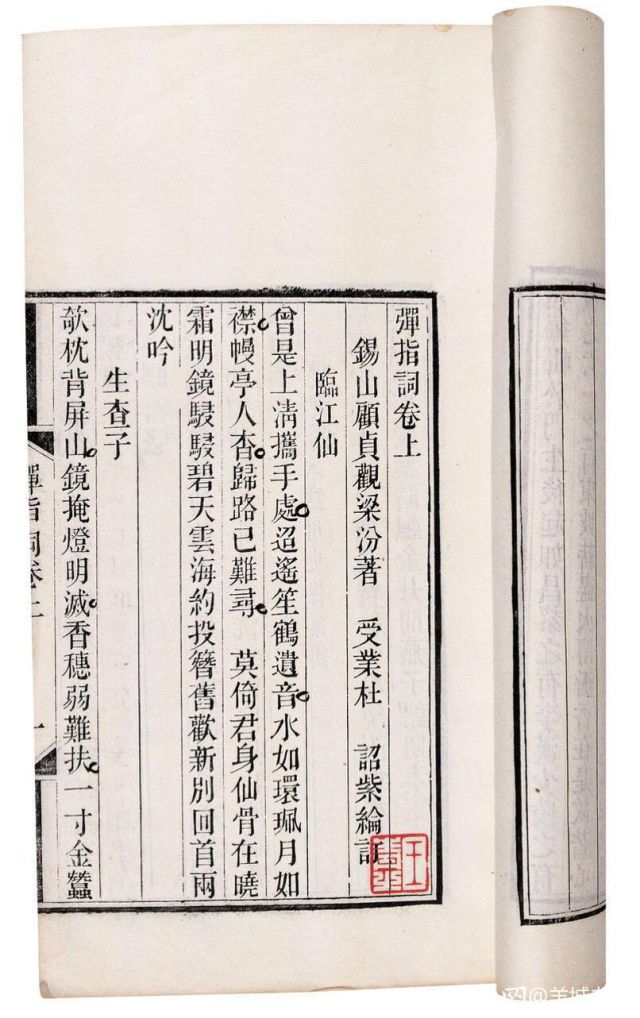 彈指詞卷上
錫山顧貞觀梁汾著　受業杜　詔紫綸
臨江仙
曾是上淸攜手處迢遙笙鶴遺音水如環珮月如
襟幔亭人杳歸路已難尋　莫倚君身仙骨在曉
霜明鏡駸駸碧天雲海約投簪舊歡新別回首兩
沈吟
生查子
欹枕背屏山鏡掩燈明滅香穗弱難扶一寸金蠶
彈指詞卷上
一
王
@羊城